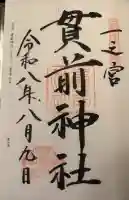 一之宮
貫前神社
令和八年八月九日